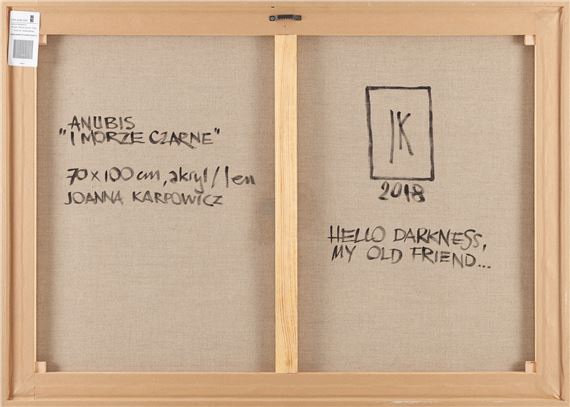 ANUBIS
"I MORZE CZARNE"
70 x 100 cm, akryl / len
JOANNA KARPOWICZ
JK
2018
HELLO DARKNESS,
MY OLD FRIEND...